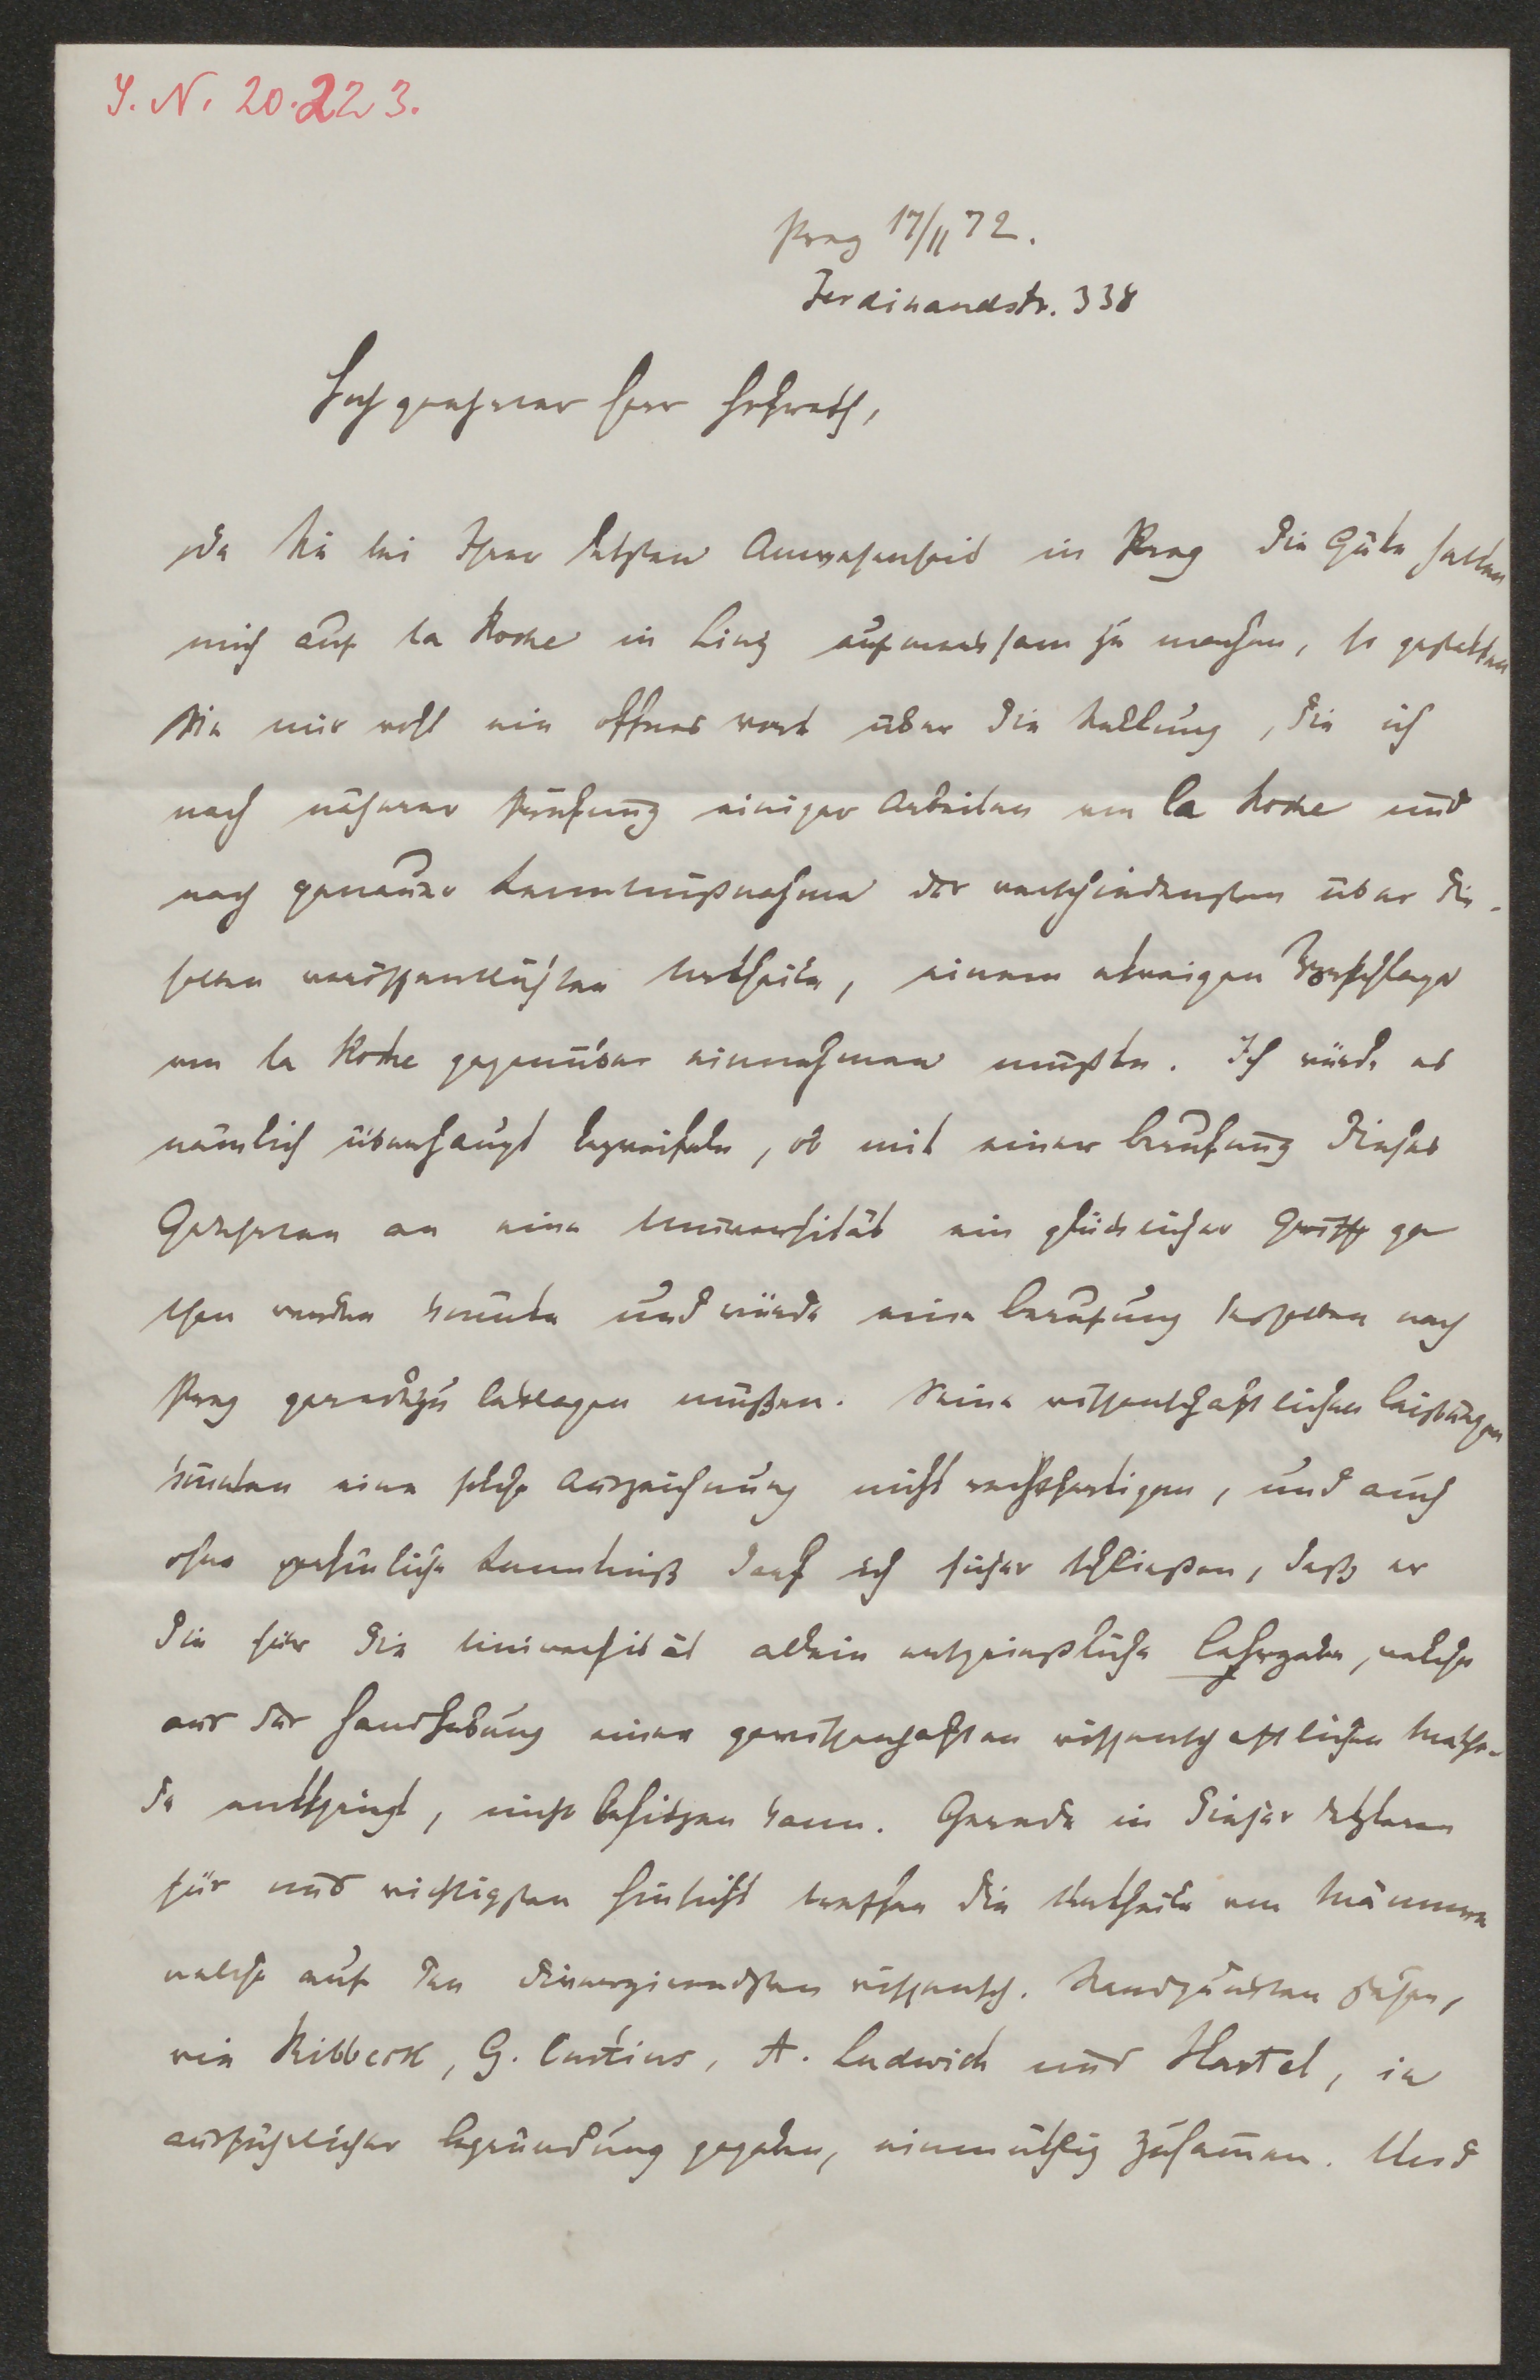 J. N. 20.223.
Prag 17/II 72.
Ferdinandstr. 338
Hochgeehrter Herr Hofrath,
da Sie bei Ihrer letzten Anwesenheit in Prag die Güte hatten
mich auf La Roche in Linz aufmerksam zu machen, so gestatten
Sie mir wohl ein offnes Wort über die Stellung, die ich
nach näherer Prüfung einiger Arbeiten von La Roche und
nach genauer Kenntnißnahme der verschiedensten über die-
selben veröffentlichten Urtheile, einem etwaigen Vorschlage
von La Roche gegenüber einnehmen müßte. Ich würde es
nämlich überhaupt bezweifeln, ob mit einer Berufung dieses
Gelehrten an eine Universität ein glücklicher Griff ge
than werden könnte und würde eine Berufung desselben nach
Prag geradezu beklagen müßen. Seine wissenschaftlichen Leistungen
könnten eine solche Auszeichnung nicht rechtfertigen, und auch
ohne persönliche Kenntniß darf ich sicher schließen, daß er
die für die Universität allein ersprießliche Lehrgabe, welche
aus der Handhabung einer gewissenhaften wissenschaftlichen Metho-
de entspringt, nicht besitzen kann. Gerade in dieser letzteren
für uns wichtigsten Hinsicht treffen die Urtheile von Männern
welche auf den divergierendsten wissensch. Standpunkten stehen,
wie Ribbeck, G. Curtius, A. Ludwich und Hartel, in
ausführlicher Begründung gegeben, einmüthig zusammen. Und